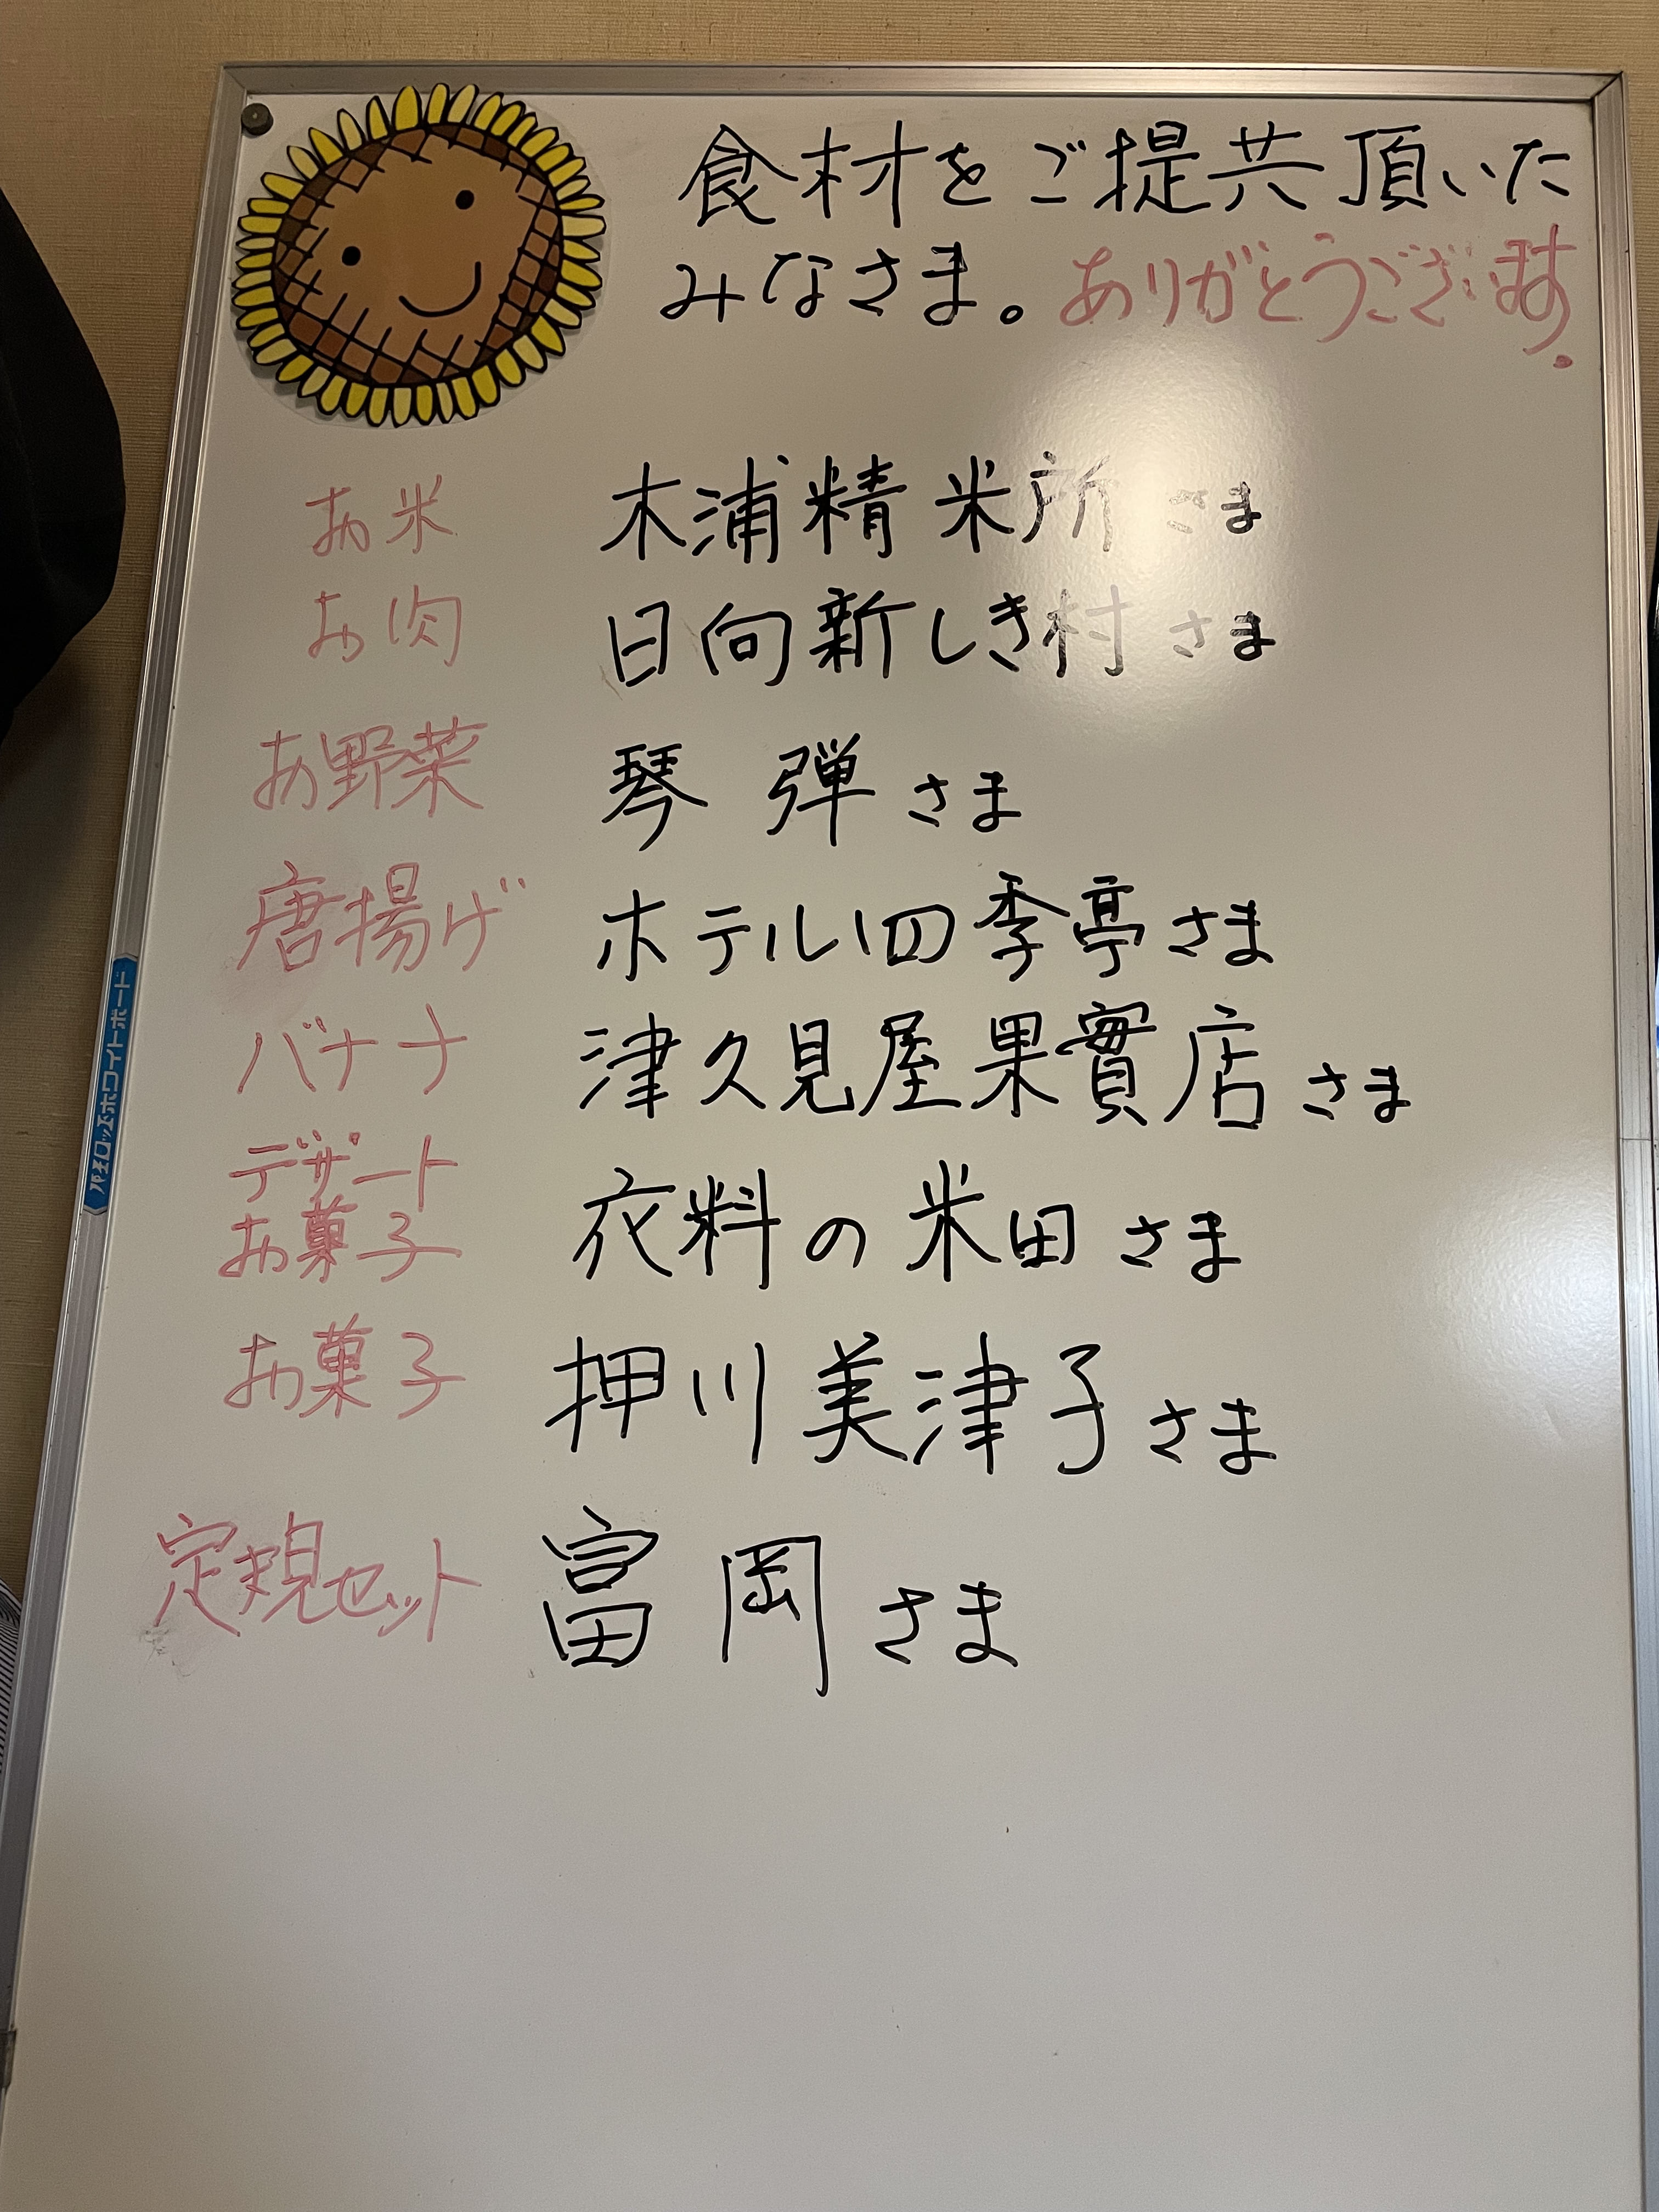 食材をご提共頂いた
みなさま。ありがとうございます.
お米 木浦精米所さま
お肉 日向新しき村さま
お野菜 琴弾さま
唐揚げ ホテル四季亭さま
バナナ 津久見屋果實店さま
デザート
お菓子 衣料の米田さま
お菓子 押川美津子さま
定規セット 富岡さま
ホワイトボード